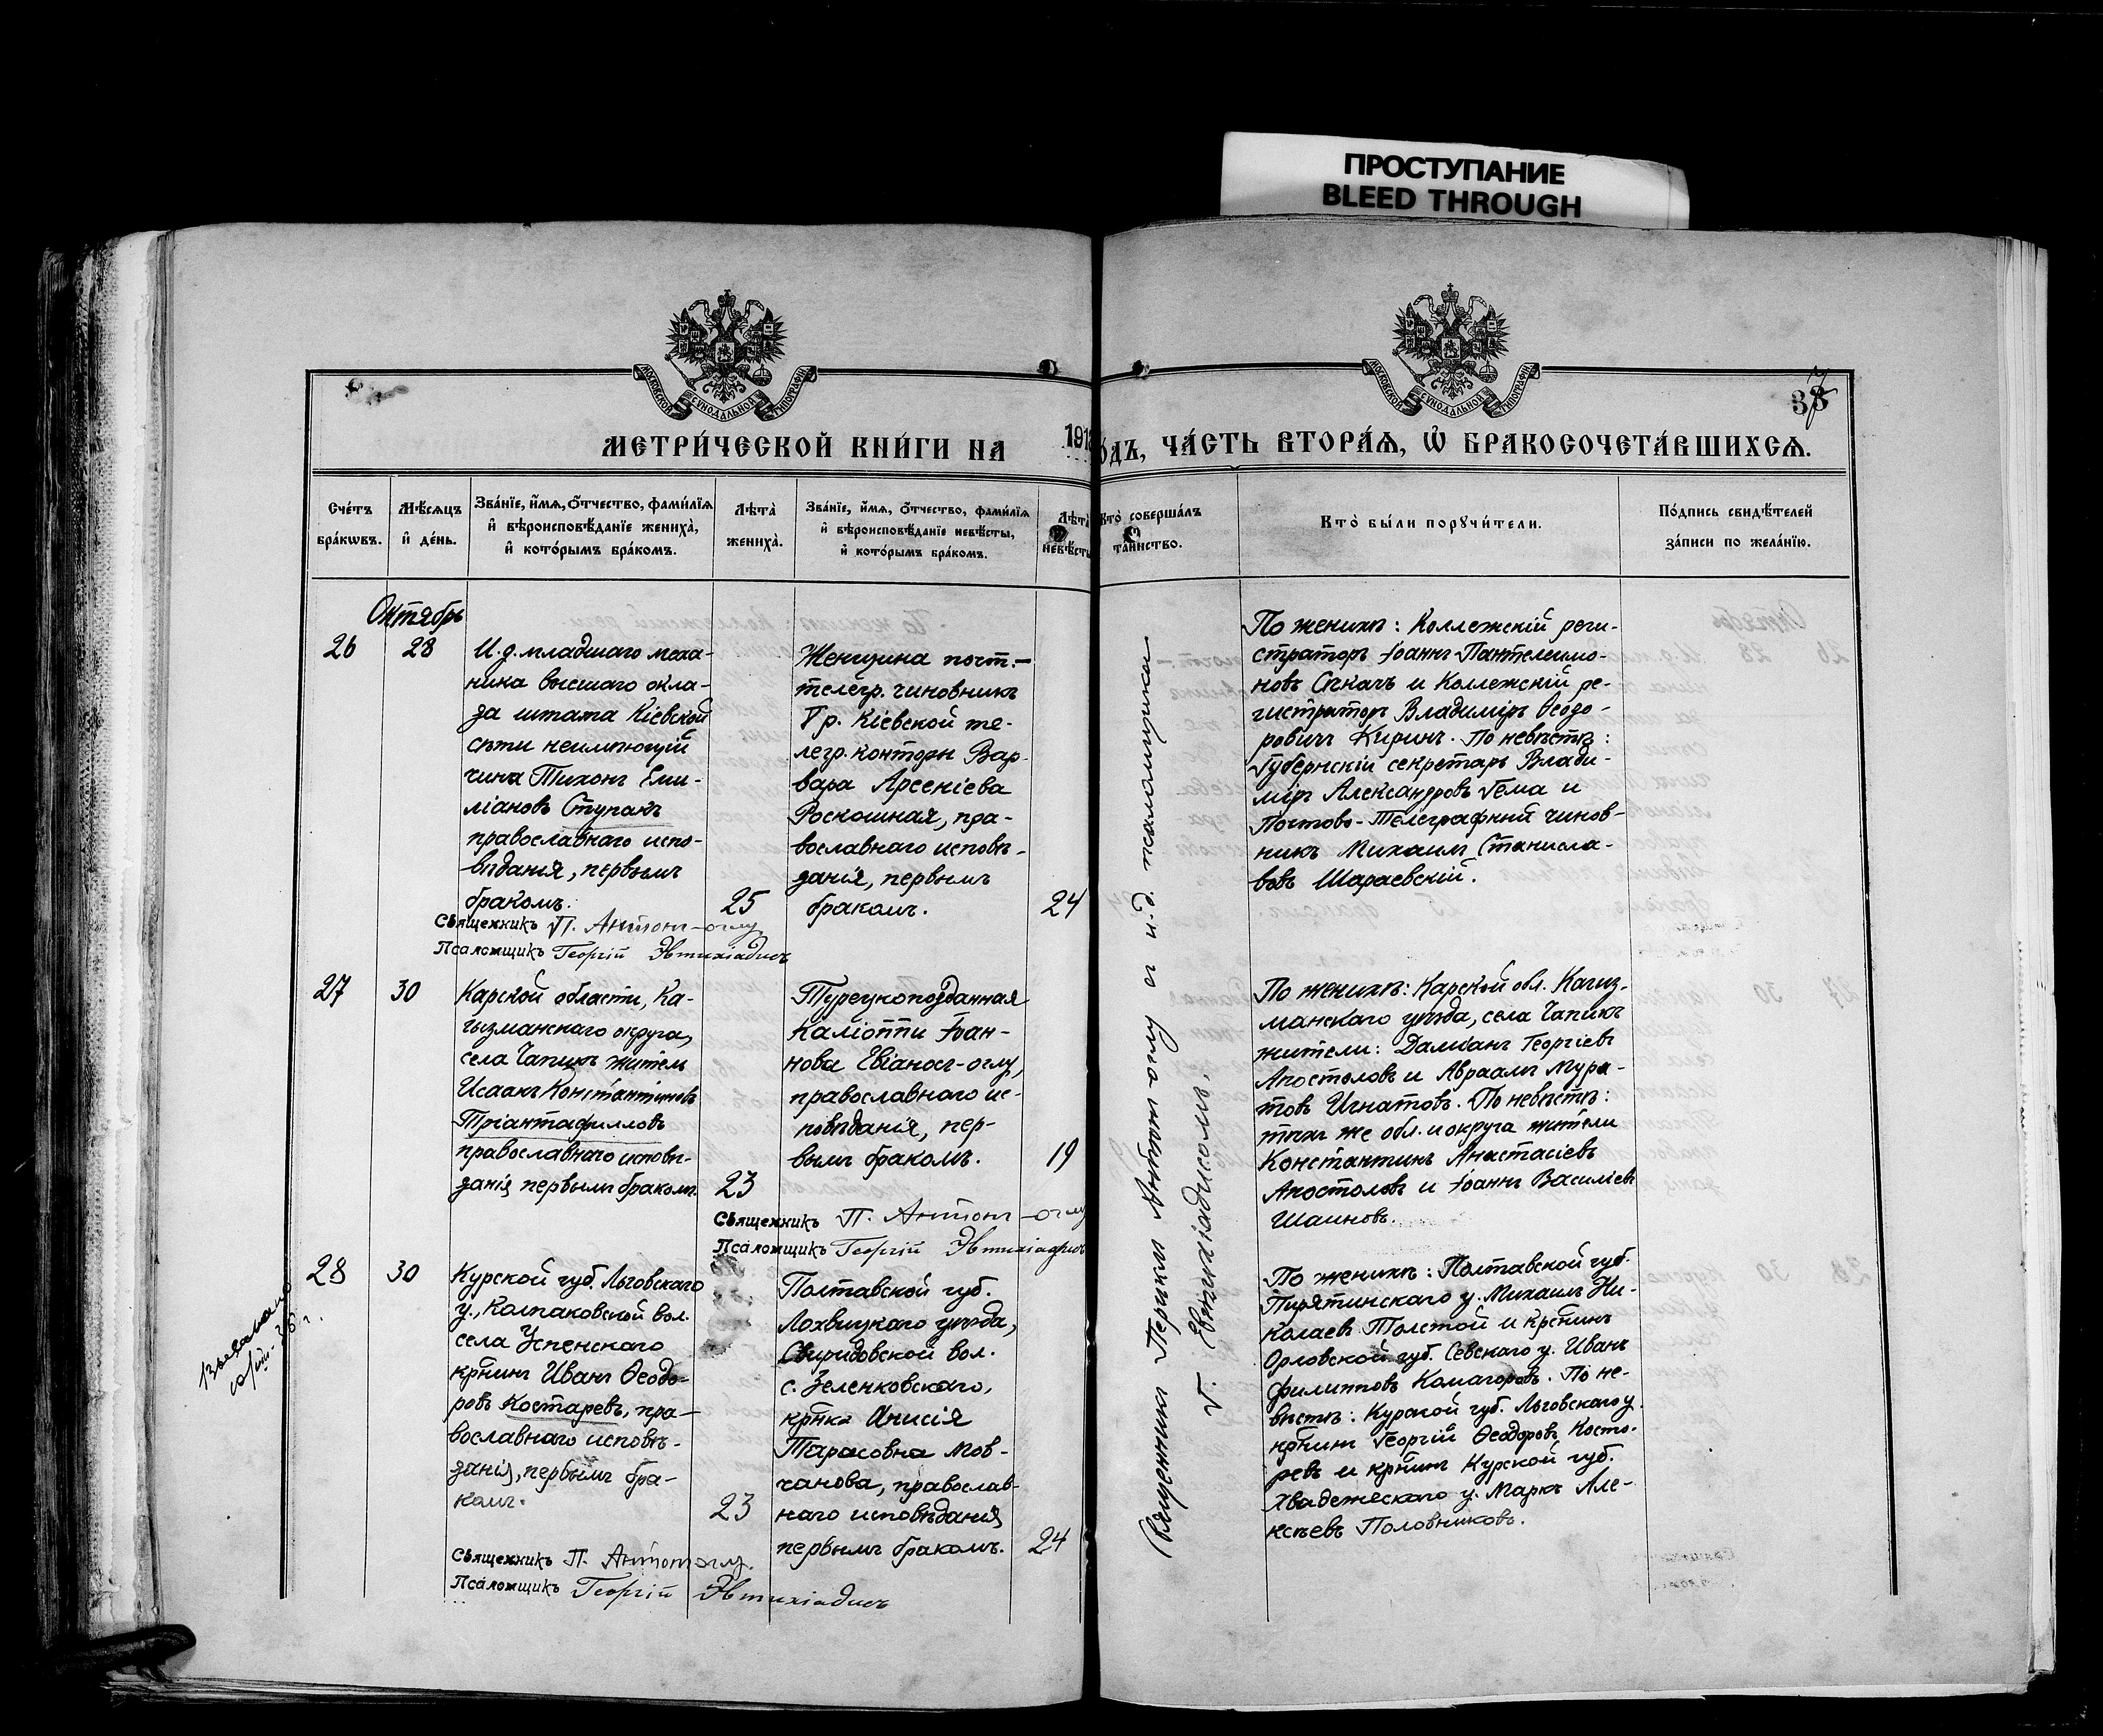 ПРОСТУПАНИЕ
BLEED THROUGH
МОСКОВСКОЙ СѴНОДАЛЬНОЙ ТИПОГРАФІИ
МОСКОВСКОЙ СѴНОДАЛЬНОЙ ТИПОГРАФІИ
37
МЕТРИ́ЧЕСКОЙ КНИ́ГИ НА 191
О́ДЪ, ЧА́СТЬ ВТОРА́Ѧ, Ѡ҆ БРАКОСОЧЕТА́ВШИХСѦ.
Сче́тъ
бра́кѡвъ.
Мѣ́сѧцъ
и҆ де́нь.
Зва́нїе, и҆́мѧ, ѻ҆́тчество, фами́лїѧ
и҆ вѣроисповѣ́данїе жениха̀,
и҆ кото́рымъ бра́комъ.
Лѣта̀
жениха̀.
Зва́нїе, и҆́мѧ, ѻ҆́тчество, фами́лїѧ
и҆ вѣроисповѣ́данїе невѣ́сты,
и҆ кото́рымъ бра́комъ.
Лѣта̀
невѣ́сты
Кто̀ соверша́лъ
та́инство.
Кто̀ бы́ли порꙋчи́тели.
По́дпись свидѣ́телей
за́писи по жела́нїю.
Октябрь
26
28
И.д. младшаго меха-
ника высшаго окла-
да штата Кіевской
сѣти неимѣющій
чина Тихонъ Еми-
ліановъ Ступакъ
православнаго испо-
вѣданія, первымъ
бракомъ.
25
Женщина почт.-
телегр. чиновникъ
V р. Кіевской те-
легр. конторы Вар-
вара Арсеніева
Роскошная, пра-
вославнаго исповѣ-
данія, первымъ
бракомъ.
24
По женихѣ: Коллежскій реги-
страторъ Іоаннъ Пантелеимо-
новъ Сѣкачъ и Коллежскій ре-
гистраторъ Владиміръ Ѳеодо-
ровичъ Киринъ. По невѣстѣ:
Губернскій секретарь Влади-
міръ Александровъ Гема и
Почтово-Телеграфный чинов-
никъ Михаилъ Станисла-
вовъ Шараевскій.
Священникъ П. Антонъ-оглу
Псаломщикъ Георгій Эвтихіадисъ
27
30
Карской области, Ка-
гызманскаго округа,
села Чапикъ житель
Исаакъ Константиновъ
Тріантафилловъ
православнаго исповѣ-
данія первымъ бракомъ.
23
Турецкоподданная
Каліоппи Іоан-
нова Евіаносъ-оглу,
православнаго ис-
повѣданія, пер-
вымъ бракомъ.
19
По женихѣ: Карской обл. Кагиз-
манскаго уѣзда, села Чапикъ
жители: Даміанъ Георгіевъ
Апостоловъ и Авраамъ Мура-
товъ Игнатовъ. По невѣстѣ:
тѣхъ же обл. и округа жители
Константинъ Анастасіевъ
Апостоловъ и Іоаннъ Василіевъ
Шаиновъ.
Священникъ П. Антонъ-оглу
Псаломщикъ Георгій Эвтихіадисъ
28
30
Курской губ. Льговскаго
у., Колпаковской вол.
села Успенскаго
крнинъ Иванъ Ѳеодо-
ровъ Костаревъ, пра-
вославнаго исповѣ-
данія, первымъ бра-
комъ.
23
Полтавской губ.
Лохвицкаго уѣзда,
Свиридовской вол.
с. Зеленковскаго,
крнка Анисія
Тарасовна Мов-
чанова, православ-
наго исповѣданія
первымъ бракомъ.
24
По женихѣ: Полтавской губ.
Пирятинскаго у. Михаилъ Ни-
колаевъ Толстой и крстнинъ
Орловской губ. Севскаго у. Иванъ
Филипповъ Комагоровъ. По не-
вѣстѣ: Курской губ. Льговскаго у.
крнинъ Георгій Ѳеодоровъ Косто-
ревъ и крнинъ Курской губ.
у. Маркъ Але-
ксѣевъ Половниковъ.
Священникъ П. Антонъ-оглу.
Псаломщикъ Георгій Эвтихіадисъ
Священникъ Периклъ Антонъ-оглу съ и.д. псаломщика
Г. Евтихіадисомъ.